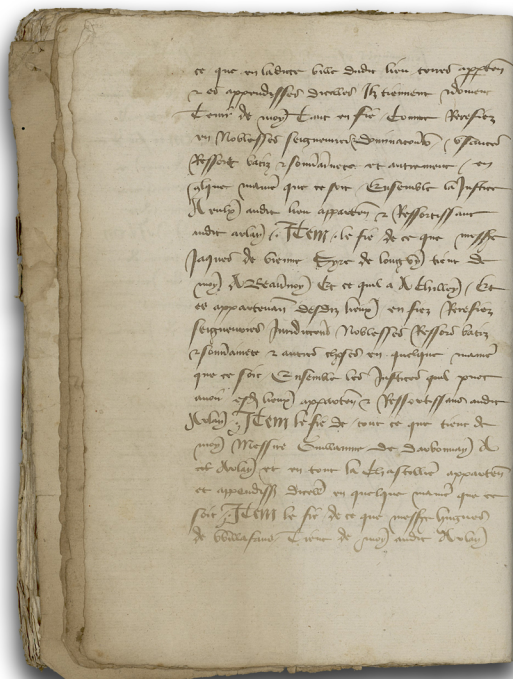 ce que en ladicte ville dudit lieu terres apparten
et es appendisses dicelles Ilz tiennent
Tenir de moy Tant en fie Comme Rerefiez
en Noblesses seigneuries dominacons
Ressort baro et souverainete et autrement en
quelque maniere que ce soit Ensemble la Justice
audit lieu apparten et Ressortissant
audit arlay Item le fie de ce que messire
Jaques de vienne Syre de longvy tient de
moy A Beauvoy Et ce quil a A Chilley Et
es appartenan desdiz lieux en fiez Rerefiez
seigneuries Juridicions Noblesses Ressors
et souverainete et autres choses en quelque maniere
que ce soit Ensemble les Justices quil puet
avoir esdiz lieux apparten et Ressortissans audit
Arlay Item le fie de tout ce que tient de
moy Messire Guillaume de Darbonnay A
cest Arlay et en toute la Chastellie apparten
et appendiss dicelle en quelque maniere que ce
soit Item le fie de ce que messire hugues
de Villafans Tient de moy audit Arlay